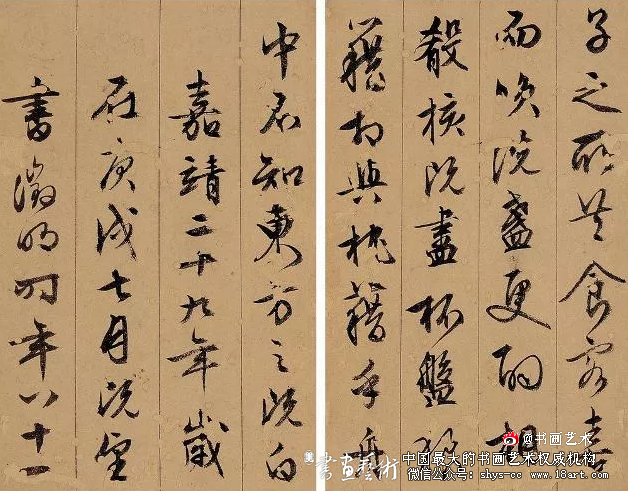 子之所共食客喜
而笑洗盏更酌相
殽核既盡杯盤狼
籍相與枕藉乎舟
中不知東方之既白
嘉靖二十九年歲
在庚戌七月既望
書徵明時年八十一
@书画艺术
書畫藝術
中国最大的书画艺术权威机构
微信公众号：shys-cc www.18art.com